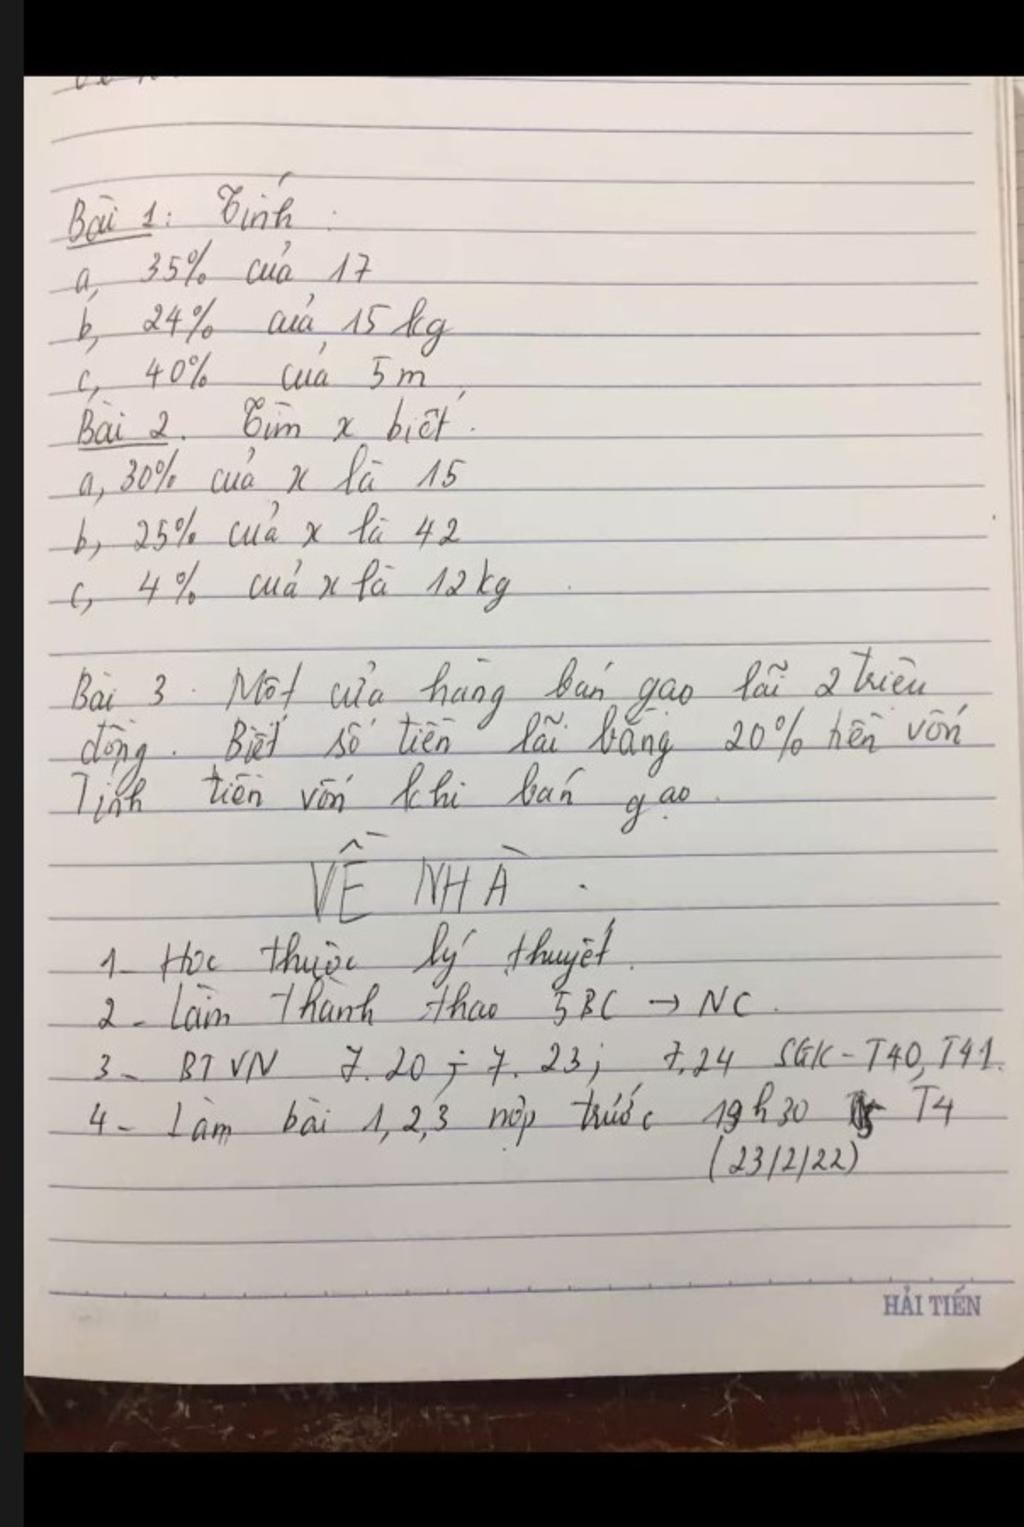 Bài 1: Tính :
a, 35% của 17
b, 24% của 15 kg
c, 40% của 5 m
Bài 2. Tìm x biết.
a, 30% của x là 15
b, 25% của x là 42
c, 4% của x là 12 kg
Bài 3. Một cửa hàng bán gạo lãi 2 triệu
đồng. Biết số tiền lãi bằng 20% tiền vốn
Tính tiền vốn khi bán gạo.
VỀ NHÀ.
1- Học thuộc lý thuyết.
2- Làm thành thạo 5BC → NC.
3- BTVN 7.20 ; 7.23; 7.24 SGK - T40, T41.
4- Làm bài 1,2,3 nộp trước 19h30 T4
(23/2/22)
HẢI TIẾN